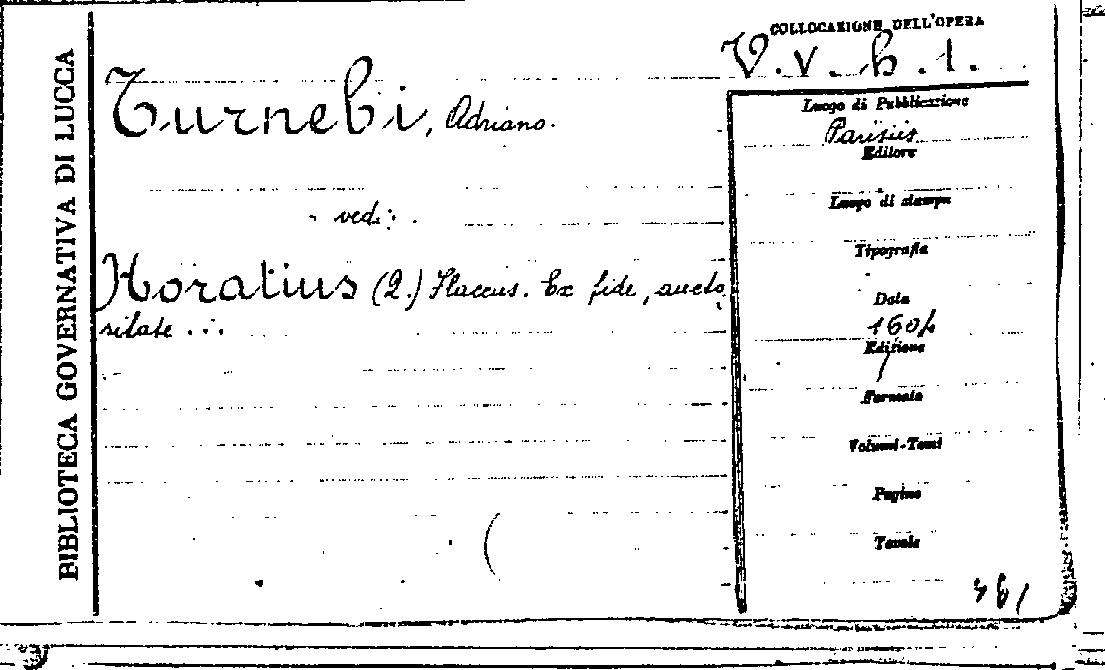 BIBLIOTECA GOVERNATIVA DI LUCCA
COLLOCAZIONE DELL'OPERA
V.v.h.1.
Turnebi, Adriano.
vedi:
Horatius (Q.) Flaccus. Ex fide, aucto
ritate ...
Luogo di Pubblicazione
Parisiis
Editore
Luogo di stampa
Tipografia
Data
1604
Edizione
Formato
Volumi-Tomi
Pagine
Tavole